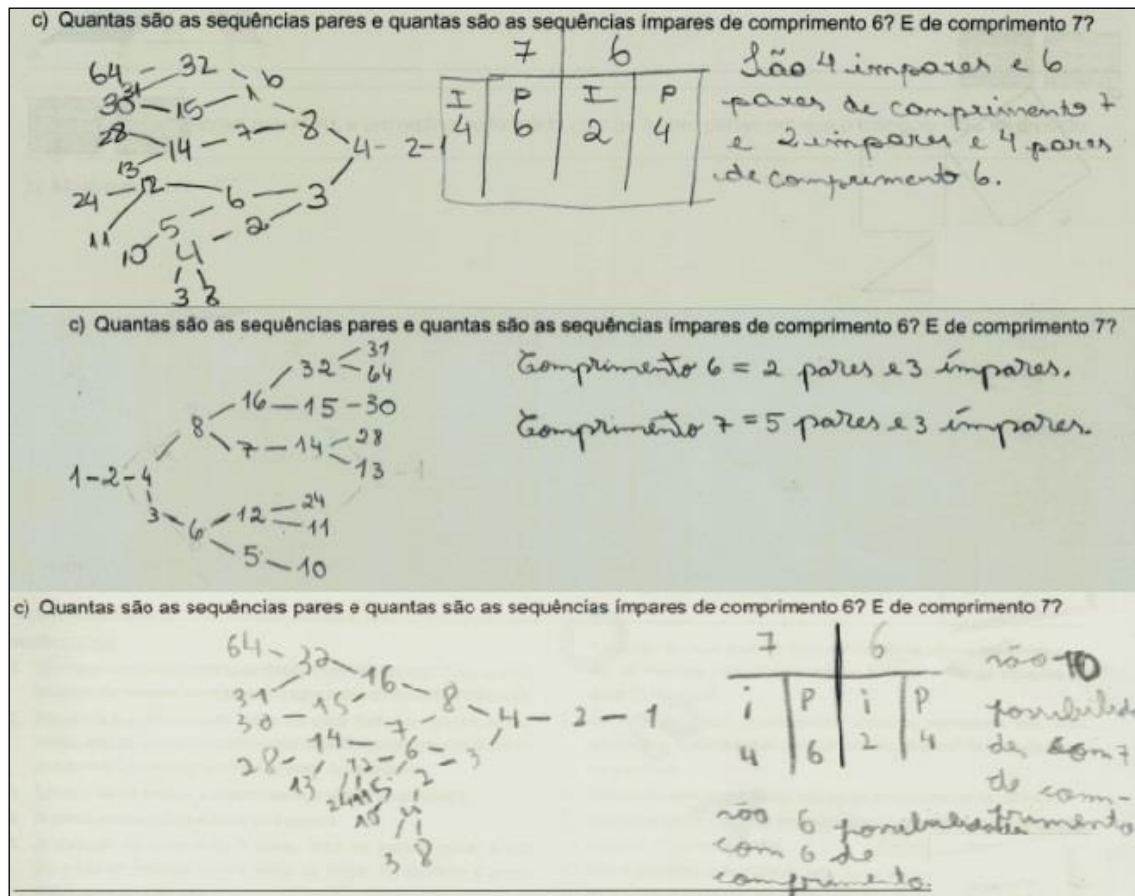 c) Quantas são as sequências pares e quantas são as sequências ímpares de comprimento 6? E de comprimento 7?
64 - 32
31
30 - 15 - 16
28
14 - 7 - 8
13
4 - 2 - 1
12
24 6 - 3
11
5 - 2
10 4
3 8
7 6
I P I P
4 6 2 4
São 4 impares e 6
pares de comprimento 7
e 2 impares e 4 pares
de comprimento 6.
c) Quantas são as sequências pares e quantas são as sequências ímpares de comprimento 6? E de comprimento 7?
31
32 64
16 - 15 - 30
8
7 - 14 28
13
1 - 2 - 4
3 6 12 24
11
5 - 10
Comprimento 6 = 2 pares e 3 ímpares.
Comprimento 7 = 5 pares e 3 ímpares.
c) Quantas são as sequências pares e quantas são as sequências ímpares de comprimento 6? E de comprimento 7?
64 - 32
31 16
30 - 15 8
28 14 7 4 - 2 - 1
13 12 - 6 3
24 11 5 2
10 4
3 8
7 6
i P i P
4 6 2 4
são 10
possibilida
des com 7
de com-
primento
são 6 possibilidades
com 6 de
comprimento.